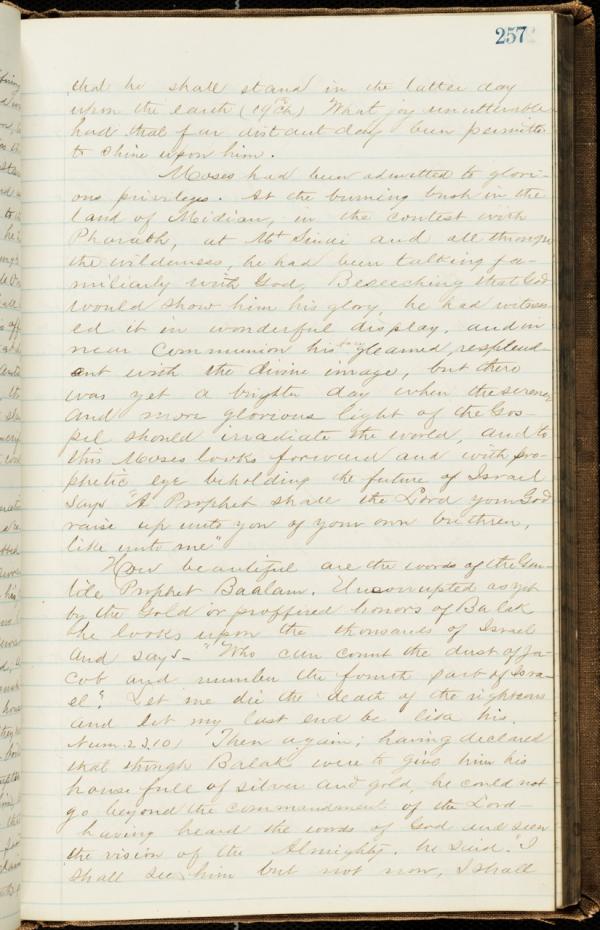 257
that he shall stand in the latter day
upon the earth (19th Ch) What joy unutterable
had that far distant day been permitted
to shine upon him.
Moses had been admitted to glori-
ous privileges. At the burning bush in the
land of Midian, in the contest with
Pharaoh, at Mt Sinai and all through
the wilderness, he had been talking fa-
miliarly with God. Beseeching that God
would show him his glory, he had witness-
ed it in wonderful display, and in
near communion his face gleamed, resplend-
ent with the divine image, but there
was yet a brighter day when the serener
and more glorious light of the Gos-
pel should irradiate the world, and to
this Moses looks forward and with pro-
phetic eye beholding the future of Israel
says "A Prophet shall the Lord your God
raise up unto you of your own brethren,
like unto me"
How beautiful are the words of the Gen-
tile Prophet Baalam. Uncorrupted as yet
by the Gold or proffered honors of Balak
he looks upon the thousands of Israel
and says - "Who can count the dust of Ja-
cob and number the fourth part of Isra-
el". Let me die the death of the righteous
and let my last end be like his.
Num. 23.10) Then again; having declared
that though Balak were to give him his
house full of silver and gold, he could not
go beyond the commandment of the Lord -
having heard the words of God and seen
the vision of the Almighty. he said "I
shall see him but not now, I shall